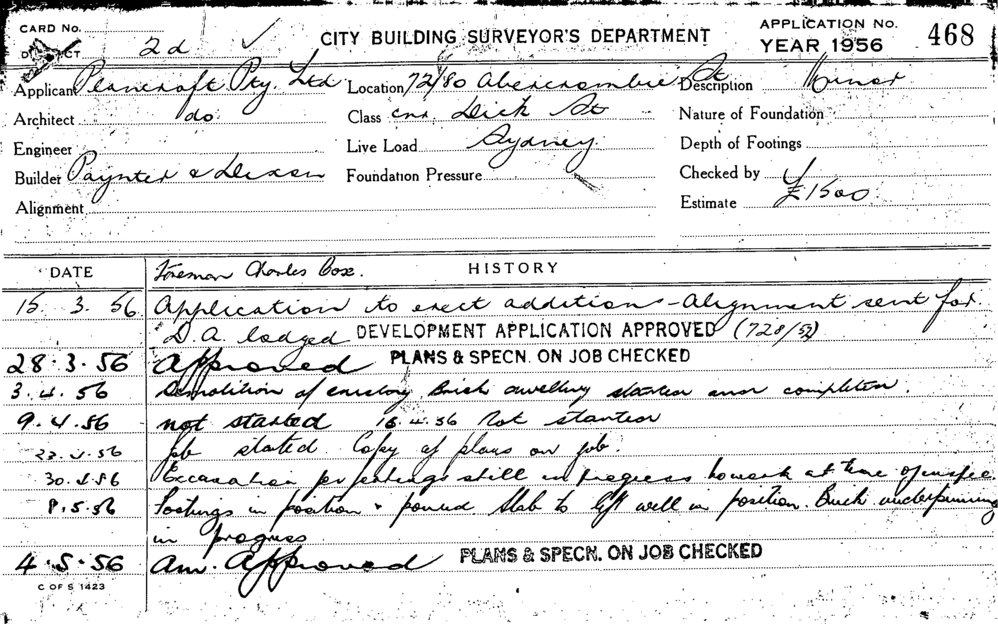 CARD No.
CITY BUILDING SURVEYOR'S DEPARTMENT
APPLICATION No. 468
YEAR 1956
DISTRICT 2d ✓
Applicant Plancraft Pty. Ltd Location 72/80 Abercrombie St Description Minor
Architect do. Class cnr Dick St Nature of Foundation
Engineer Live Load Sydney Depth of Footings
Builder Paynter & Dixon Foundation Pressure Checked by
Alignment Estimate £1500
DATE Foreman Charles Cox. HISTORY
15.3.56 Application to erect additions - Alignment sent for.
D.A. lodged DEVELOPMENT APPLICATION APPROVED (728/52)
28.3.56 Approved PLANS & SPECN. ON JOB CHECKED
3.4.56 Demolition of existing Brick dwelling started and completed.
9.4.56 not started 16.4.56 Not started
23.4.56 Job started. Copy of plans on job.
30.4.56 Excavation for footings still in progress no work at time of inspec.
8.5.56 Footings in position & poured. Slab to lift well in position. Brick underpinning
in progress
4.5.56 Am. Approved PLANS & SPECN. ON JOB CHECKED
C OF S 1423